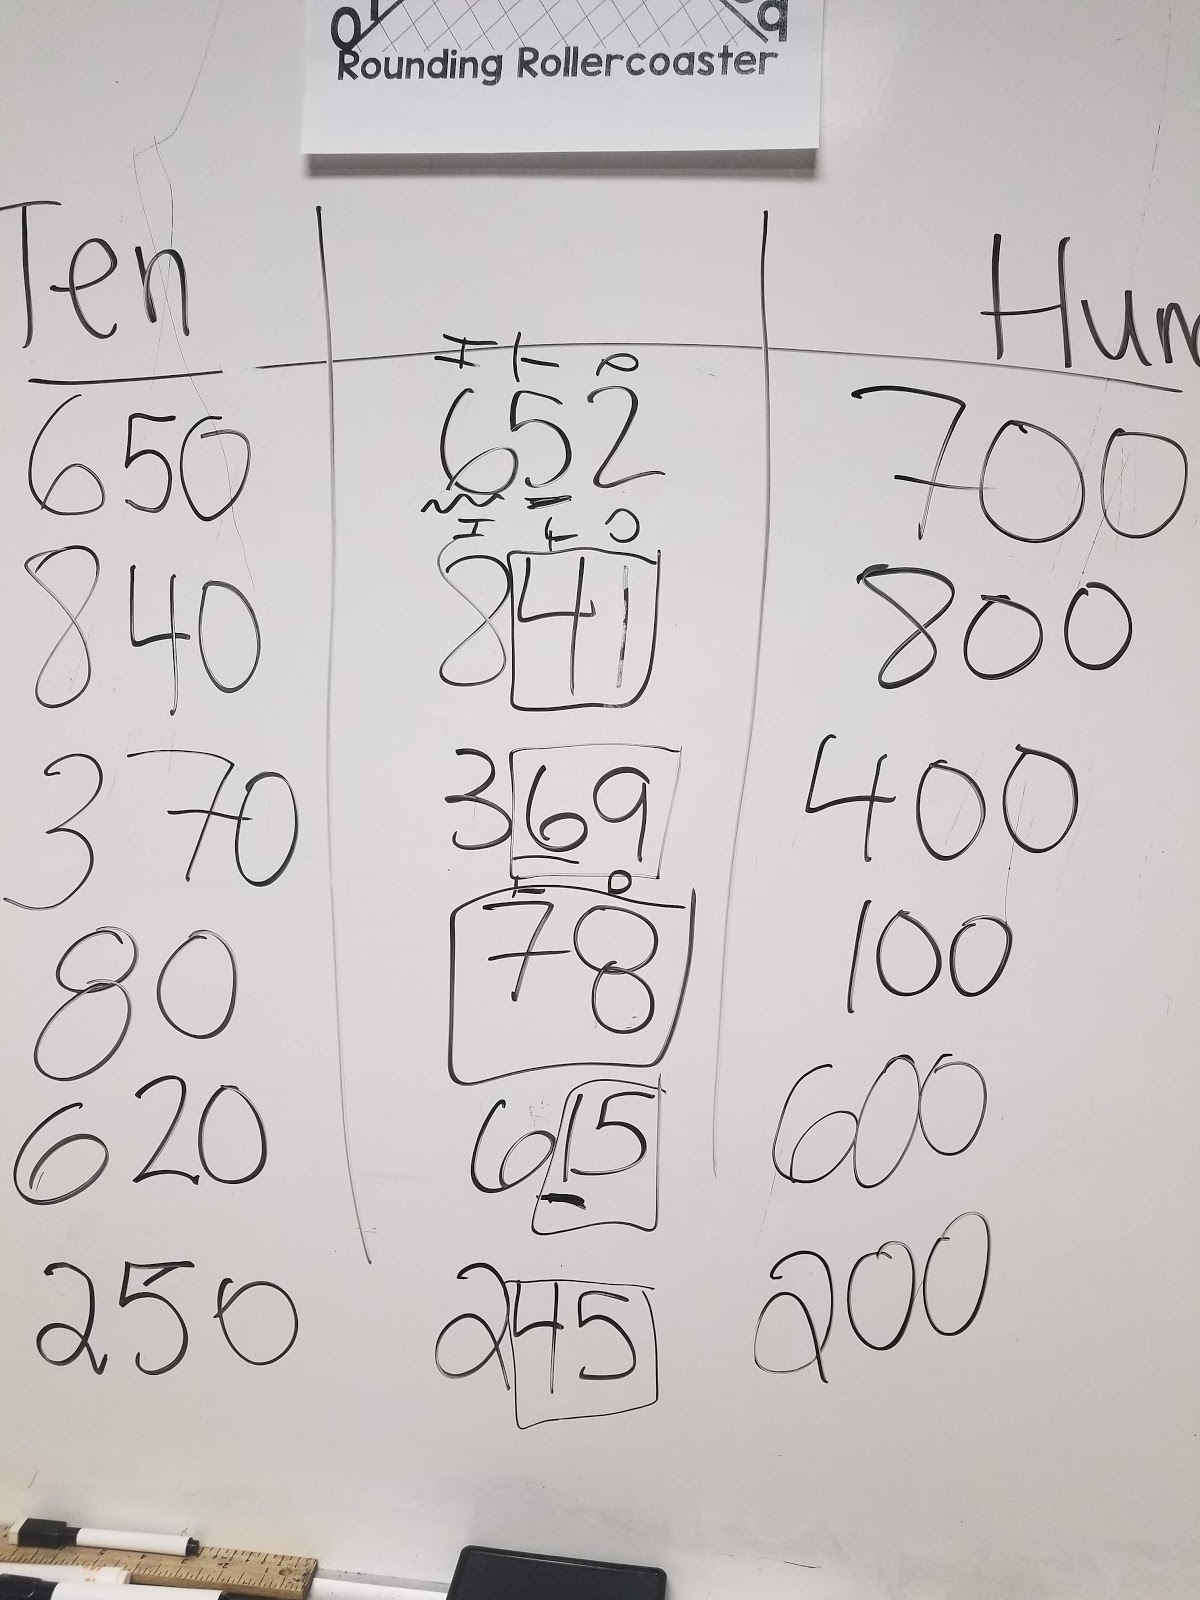 0 1 9
Rounding Rollercoaster
Ten Hun
H T O
650 652 700
H T O
840 841 800
370 369 400
T O
80 78 100
620 615 600
250 245 200